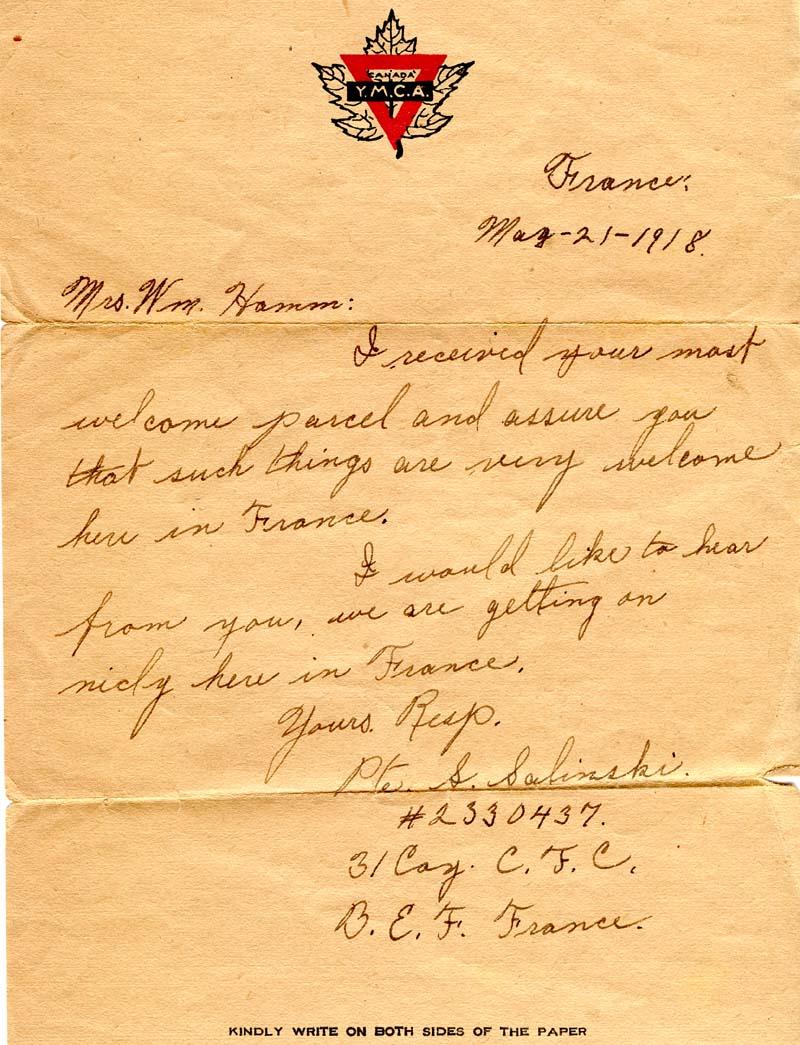 CANADA
Y.M.C.A.
France:
May-21-1918.
Mrs. Wm. Hamm:
I received your most
welcome parcel and assure you
that such things are very welcome
here in France.
I would like to hear
from you, we are getting on
nicly here in France.
Yours. Resp.
Pte. S. Salinski.
#2330437.
31 Coy. C. F. C.
B. E. F. France.
KINDLY WRITE ON BOTH SIDES OF THE PAPER